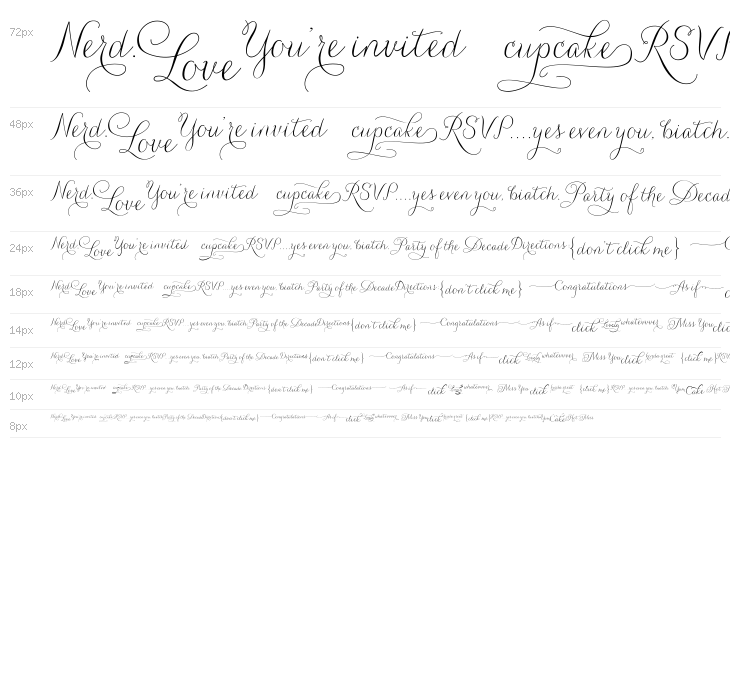 72px Nerd. Love You're invited cupcake RSVP
48px Nerd. Love You're invited cupcake RSVP....yes even you, biatch.
36px Nerd. Love You're invited cupcake RSVP....yes even you, biatch. Party of the Decad
24px Nerd. Love You're invited cupcake RSVP....yes even you, biatch. Party of the Decade Directions {don't click me}
18px Nerd. Love You're invited cupcake RSVP....yes even you, biatch. Party of the Decade Directions {don't click me} Congratulations As if
14px Nerd. Love You're invited cupcake RSVP yes even you, biatch. Party of the Decade Directions {don't click me} Congratulations As if click whatevverrr Miss You clic
12px Nerd. Love You're invited cupcake RSVP yes even you, biatch. Party of the Decade Directions {don't click me} Congratulations As if click whatevverrr Miss You click {click me}
10px Nerd. Love You're invited cupcake RSVP yes even you, biatch. Party of the Decade Directions {don't click me} Congratulations As if click Miss You click {click me} RSVP Cake
8px